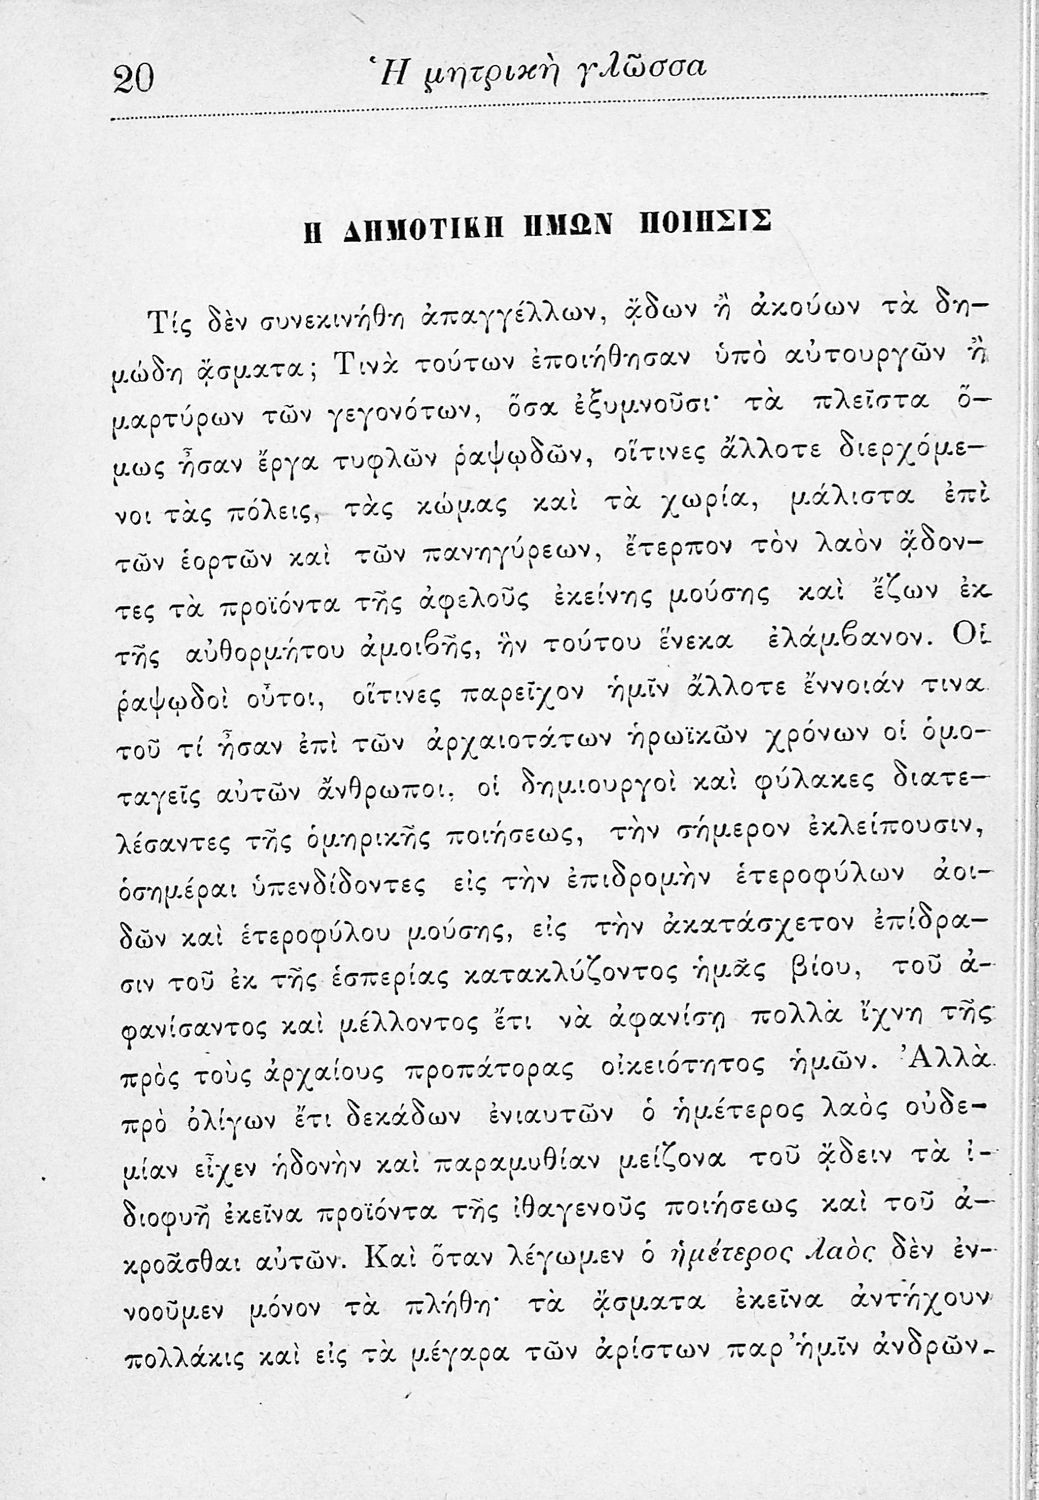 20
Ἡ μητρικὴ γλῶσσα
Η ΔΗΜΟΤΙΚΗ ΗΜΩΝ ΠΟΙΗΣΙΣ
Τίς δὲν συνεκινήθη ἀπαγγέλλων, ᾄδων ἢ ἀκούων τὰ δη-
μώδη ᾄσματα; Τινὰ τούτων ἐποιήθησαν ὑπὸ αὐτουργῶν ἢ
μαρτύρων τῶν γεγονότων, ὅσα ἐξυμνοῦσι· τὰ πλεῖστα ὅ-
μως ἦσαν ἔργα τυφλῶν ῥαψῳδῶν, οἵτινες ἄλλοτε διερχόμε-
νοι τὰς πόλεις, τὰς κώμας καὶ τὰ χωρία, μάλιστα ἐπὶ
τῶν ἑορτῶν καὶ τῶν πανηγύρεων, ἔτερπον τὸν λαὸν ᾄδον-
τες τὰ προϊόντα τῆς ἀφελοῦς ἐκείνης μούσης καὶ ἔζων ἐκ
τῆς αὐθορμήτου ἀμοιβῆς, ἣν τούτου ἕνεκα ἐλάμβανον. Οἱ
ῥαψῳδοὶ οὗτοι, οἵτινες παρεῖχον ἡμῖν ἄλλοτε ἔννοιάν τινα
τοῦ τί ἦσαν ἐπὶ τῶν ἀρχαιοτάτων ἡρωϊκῶν χρόνων οἱ ὁμο-
ταγεῖς αὐτῶν ἄνθρωποι, οἱ δημιουργοὶ καὶ φύλακες διατε-
λέσαντες τῆς ὁμηρικῆς ποιήσεως, τὴν σήμερον ἐκλείπουσιν,
ὁσημέραι ὑπενδίδοντες εἰς τὴν ἐπιδρομὴν ἑτεροφύλων ἀοι-
δῶν καὶ ἑτεροφύλου μούσης, εἰς τὴν ἀκατάσχετον ἐπίδρα-
σιν τοῦ ἐκ τῆς ἑσπερίας κατακλύζοντος ἡμᾶς βίου, τοῦ ἀ-
φανίσαντος καὶ μέλλοντος ἔτι νὰ ἀφανίσῃ πολλὰ ἴχνη τῆς
πρὸς τοὺς ἀρχαίους προπάτορας οἰκειότητος ἡμῶν. Ἀλλὰ
πρὸ ὀλίγων ἔτι δεκάδων ἐνιαυτῶν ὁ ἡμέτερος λαὸς οὐδε-
μίαν εἶχεν ἡδονὴν καὶ παραμυθίαν μείζονα τοῦ ᾄδειν τὰ ἰ-
διοφυῆ ἐκεῖνα προϊόντα τῆς ἰθαγενοῦς ποιήσεως καὶ τοῦ ἀ-
κροᾶσθαι αὐτῶν. Καὶ ὅταν λέγωμεν ὁ ἡμέτερος λαὸς δὲν ἐν-
νοοῦμεν μόνον τὰ πλήθη· τὰ ᾄσματα ἐκεῖνα ἀντήχουν
πολλάκις καὶ εἰς τὰ μέγαρα τῶν ἀρίστων παρ' ἡμῖν ἀνδρῶν.